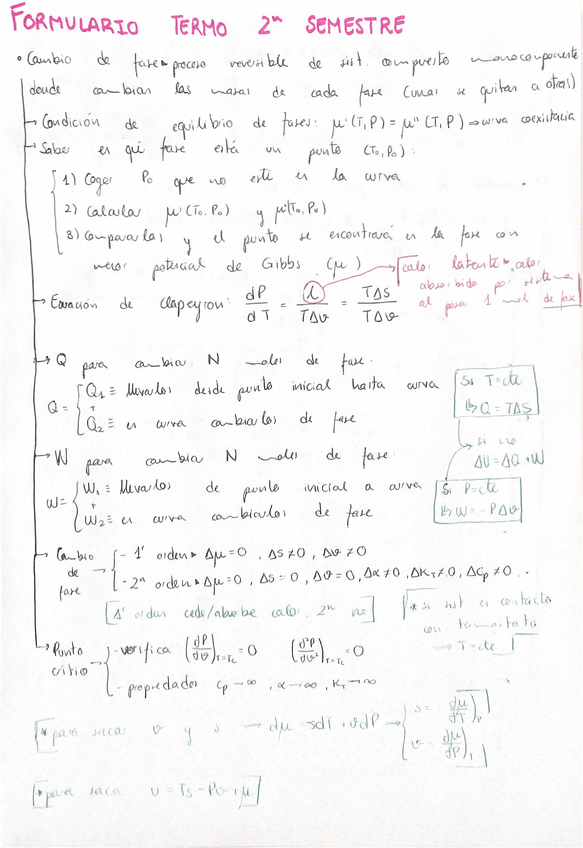 FORMULARIO TERMO 2º SEMESTRE
• Cambio de fase ▸ proceso reversible de sist. compuesto monocomponente
donde cambian las masas de cada fase (unas se quitan a otras)
→ Condición de equilibrio de fases: μ'(T,P) = μ''(T,P) → curva coexistencia
→ Saber en qué fase está un punto (T₀,P₀):
1) Coger P₀ que no esté en la curva
2) Calcular μ'(T₀,P₀) y μ''(T₀,P₀)
3) Compararlas y el punto se encontrará en la fase con
menor potencial de Gibbs (μ)
calor latente ▸ calor
absorbido por sistema
al pasar 1 mol de fase
→ Ecuación de Clapeyron: dP/dT = l/TΔv = TΔS/TΔv
→ Q para cambiar N moles de fase:
Q = { Q₁ ≡ llevarlos desde punto inicial hasta curva
+
Q₂ ≡ en curva cambiarlos de fase
Si T=cte
↳ Q = TΔS
si no
ΔU = ΔQ + W
→ W para cambiar N moles de fase:
W = { W₁ ≡ llevarlos de punto inicial a curva
+
W₂ ≡ en curva cambiarlos de fase
Si P=cte
↳ W = -PΔv
→ Cambio de fase
- 1º orden ▸ Δμ=0, ΔS≠0, Δv≠0
- 2º orden ▸ Δμ=0, ΔS=0, Δv=0, Δα≠0, ΔK_T≠0, ΔC_p≠0
[1º orden cede/absorbe calor, 2º no]
* si sist en contacto
con termostato
→ T=cte
→ Punto crítico
- verifica (dP/dv)_{T=Tc} = 0 (d²P/dv²)_{T=Tc} = 0
- propiedades C_p → ∞, α → ∞, K_T → ∞
[* para sacar v y s → dμ = -sdT + vdP →
s = -dμ/dT)_P
v = dμ/dP)_T
[* para sacar u = Ts - Pv + μ]